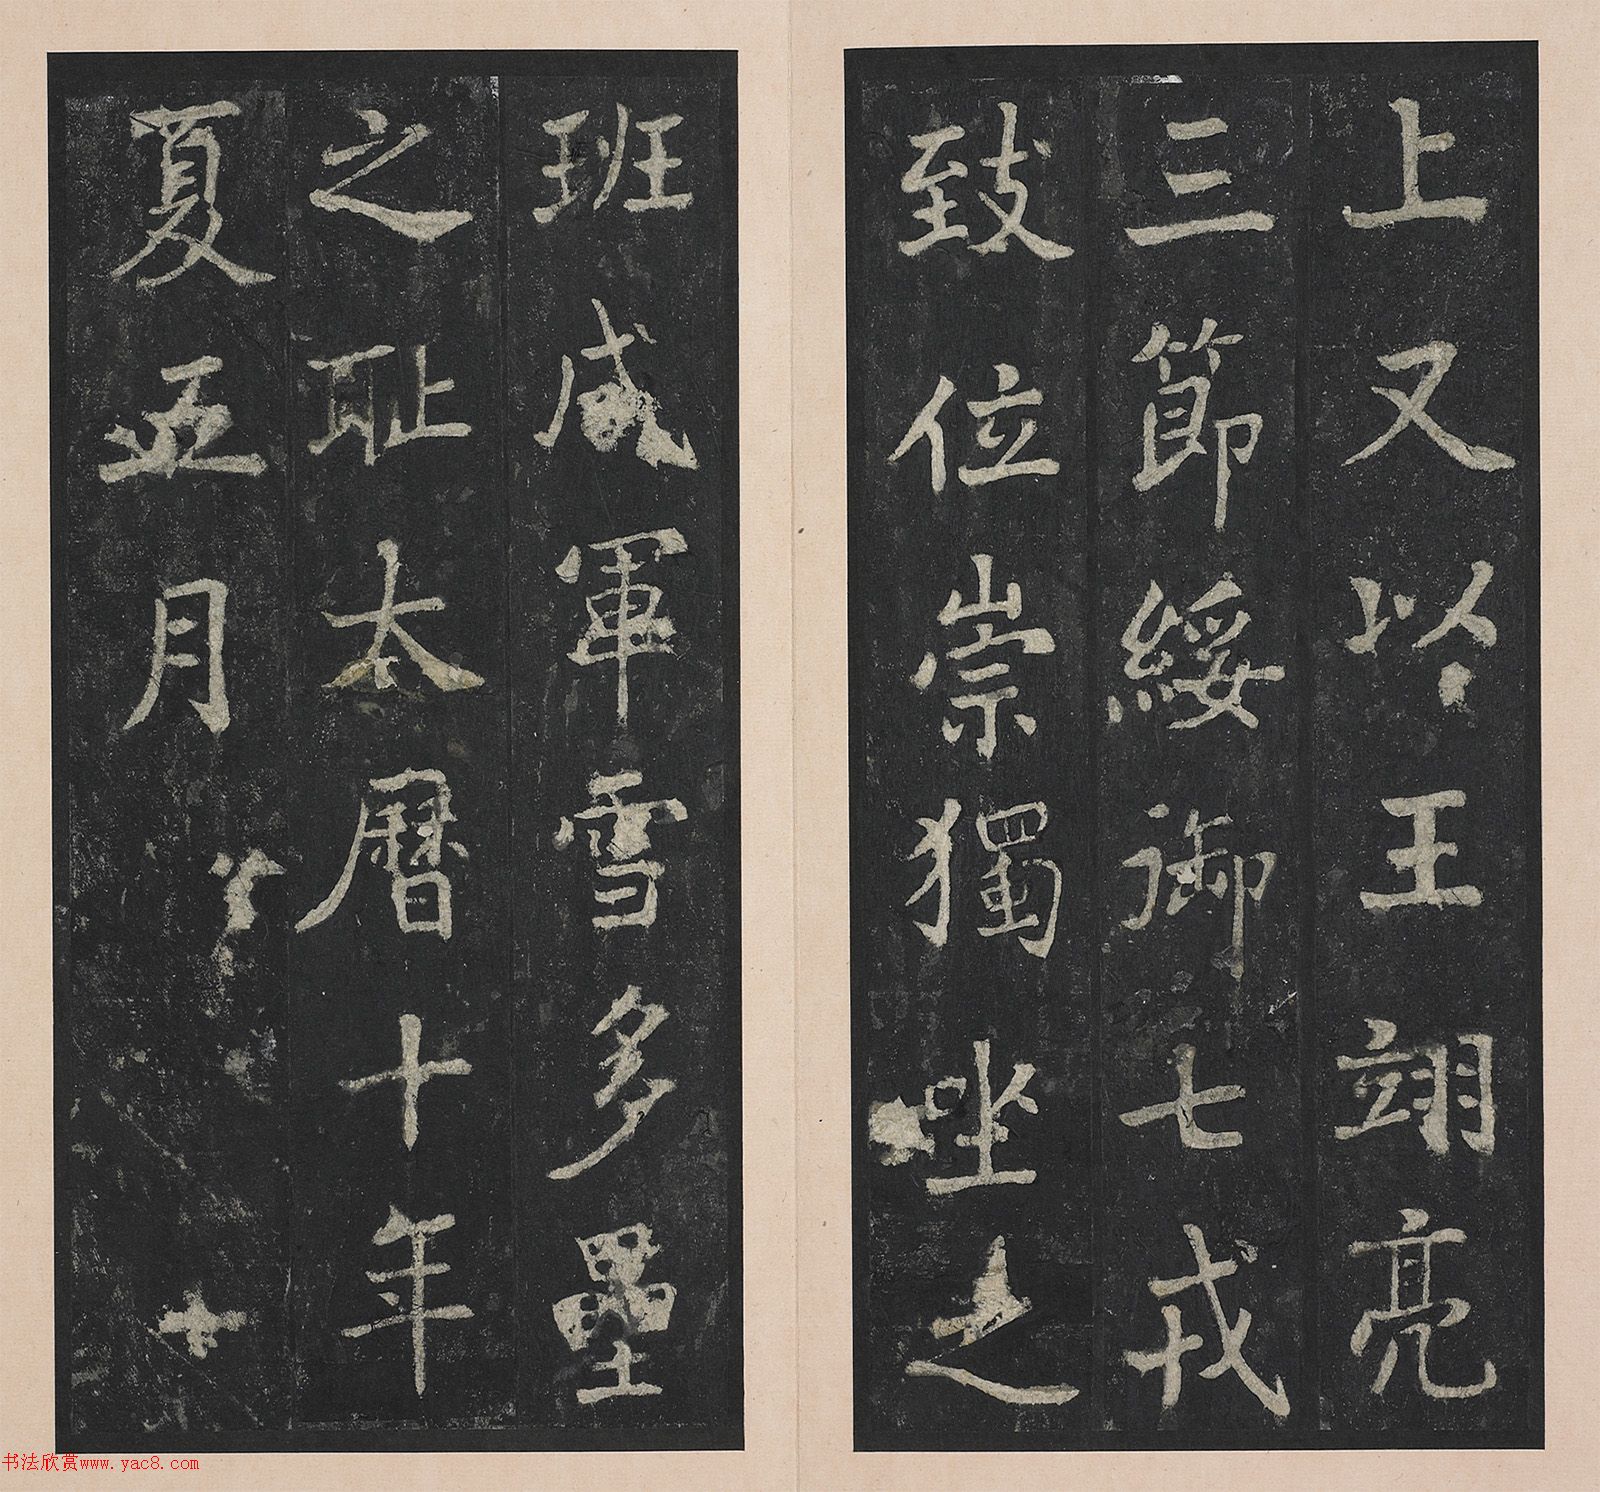 上又以王翊亮
三節綏御七戎
致位崇獨坐之
班咸軍雪多壘
之恥太曆十年
夏五月
书法欣赏www.yac8.com